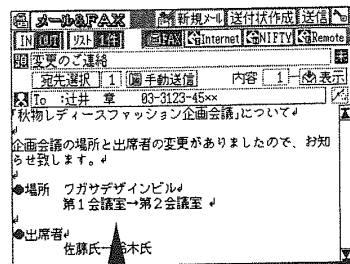 メール&FAX 新規メール 送付状作成 送信
IN OUT リスト 1件 FAX Internet NIFTY Remote
変更のご連絡
宛先選択 1 手動送信 内容 1 表示
To :辻井 章 03-3123-45××
「秋物レディースファッション企画会議」について↲
↲
企画会議の場所と出席者の変更がありましたので、お知
らせ致します。↲
↲
●場所 ワガサデザインビル↲
第1会議室→第2会議室 ↲
↲
●出席者↲
佐藤氏→ 木氏